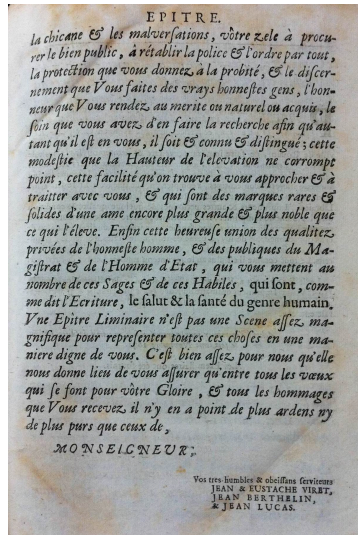 EPITRE.
la chicane & les malversations, vôtre zele à procu-
rer le bien public, à rétablir la police & l'ordre par tout,
la protection que vous donnez à la probité, & le discer-
nement que Vous faites des vrays honnestes gens, l'hon-
neur que Vous rendez au merite ou naturel ou acquis, le
soin que vous avez d'en faire la recherche afin qu'au-
tant qu'il est en vous, il soit & connu & distingué; cette
modestie que la Hauteur de l'elevation ne corrompt
point, cette facilité qu'on trouve à vous approcher & à
traitter avec vous, & qui sont des marques rares &
solides d'une ame encore plus grande & plus noble que
ce qui l'éleve. Enfin cette heureuse union des qualitez
privées de l'honneste homme, & des publiques du Ma-
gistrat & de l'Homme d'Etat, qui vous mettent au
nombre de ces Sages & de ces Habiles, qui sont, com-
me dit l'Ecriture, le salut & la santé du genre humain.
Vne Epître Liminaire n'est pas une Scene assez ma-
gnifique pour representer toutes ces choses en une ma-
niere digne de vous. C'est bien assez pour nous qu'elle
nous donne lieu de vous assurer qu'entre tous les vœux
qui se font pour vôtre Gloire, & tous les hommages
que Vous recevez il n'y en a point de plus ardens ny
de plus purs que ceux de,
MONSEIGNEUR,
Vos tres-humbles & obeïssans serviteurs
JEAN & EUSTACHE VIRET,
JEAN BERTHELIN,
& JEAN LUCAS.